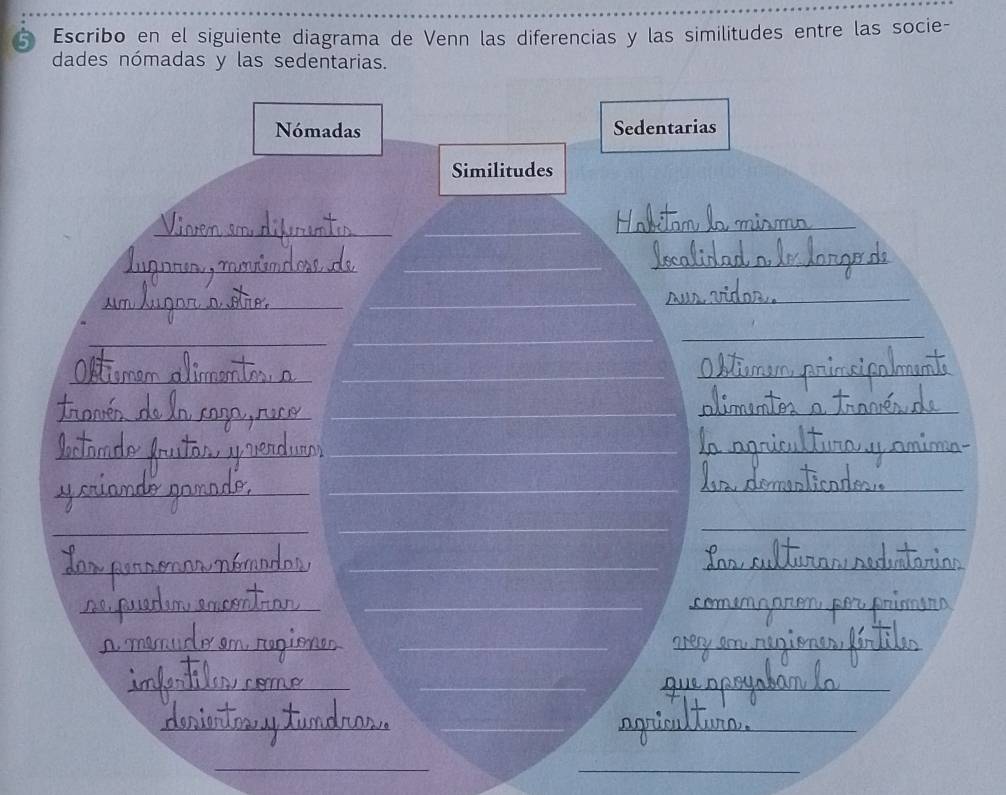 5 Escribo en el siguiente diagrama de Venn las diferencias y las similitudes entre las socie-
dades nómadas y las sedentarias.
Nómadas
Sedentarias
Similitudes
Viven en diferentes
lugares, moviendose de
un lugar a otro.
Obtienen alimentos a
través de la caza, reco
lectando frutas y verduras
y criando ganado.
Las personas nómadas
se pueden encontrar
a menudo en regiones
infertiles como
desiertos y tundras.
Habitan la misma
localidad a lo largo de
sus vidas.
Obtienen principalmente
alimentos a través de
la agricultura y anima-
les domesticados.
Las culturas sedentarias
comenzaron por primera
vez en regiones fértiles
que apoyaban la
agricultura.